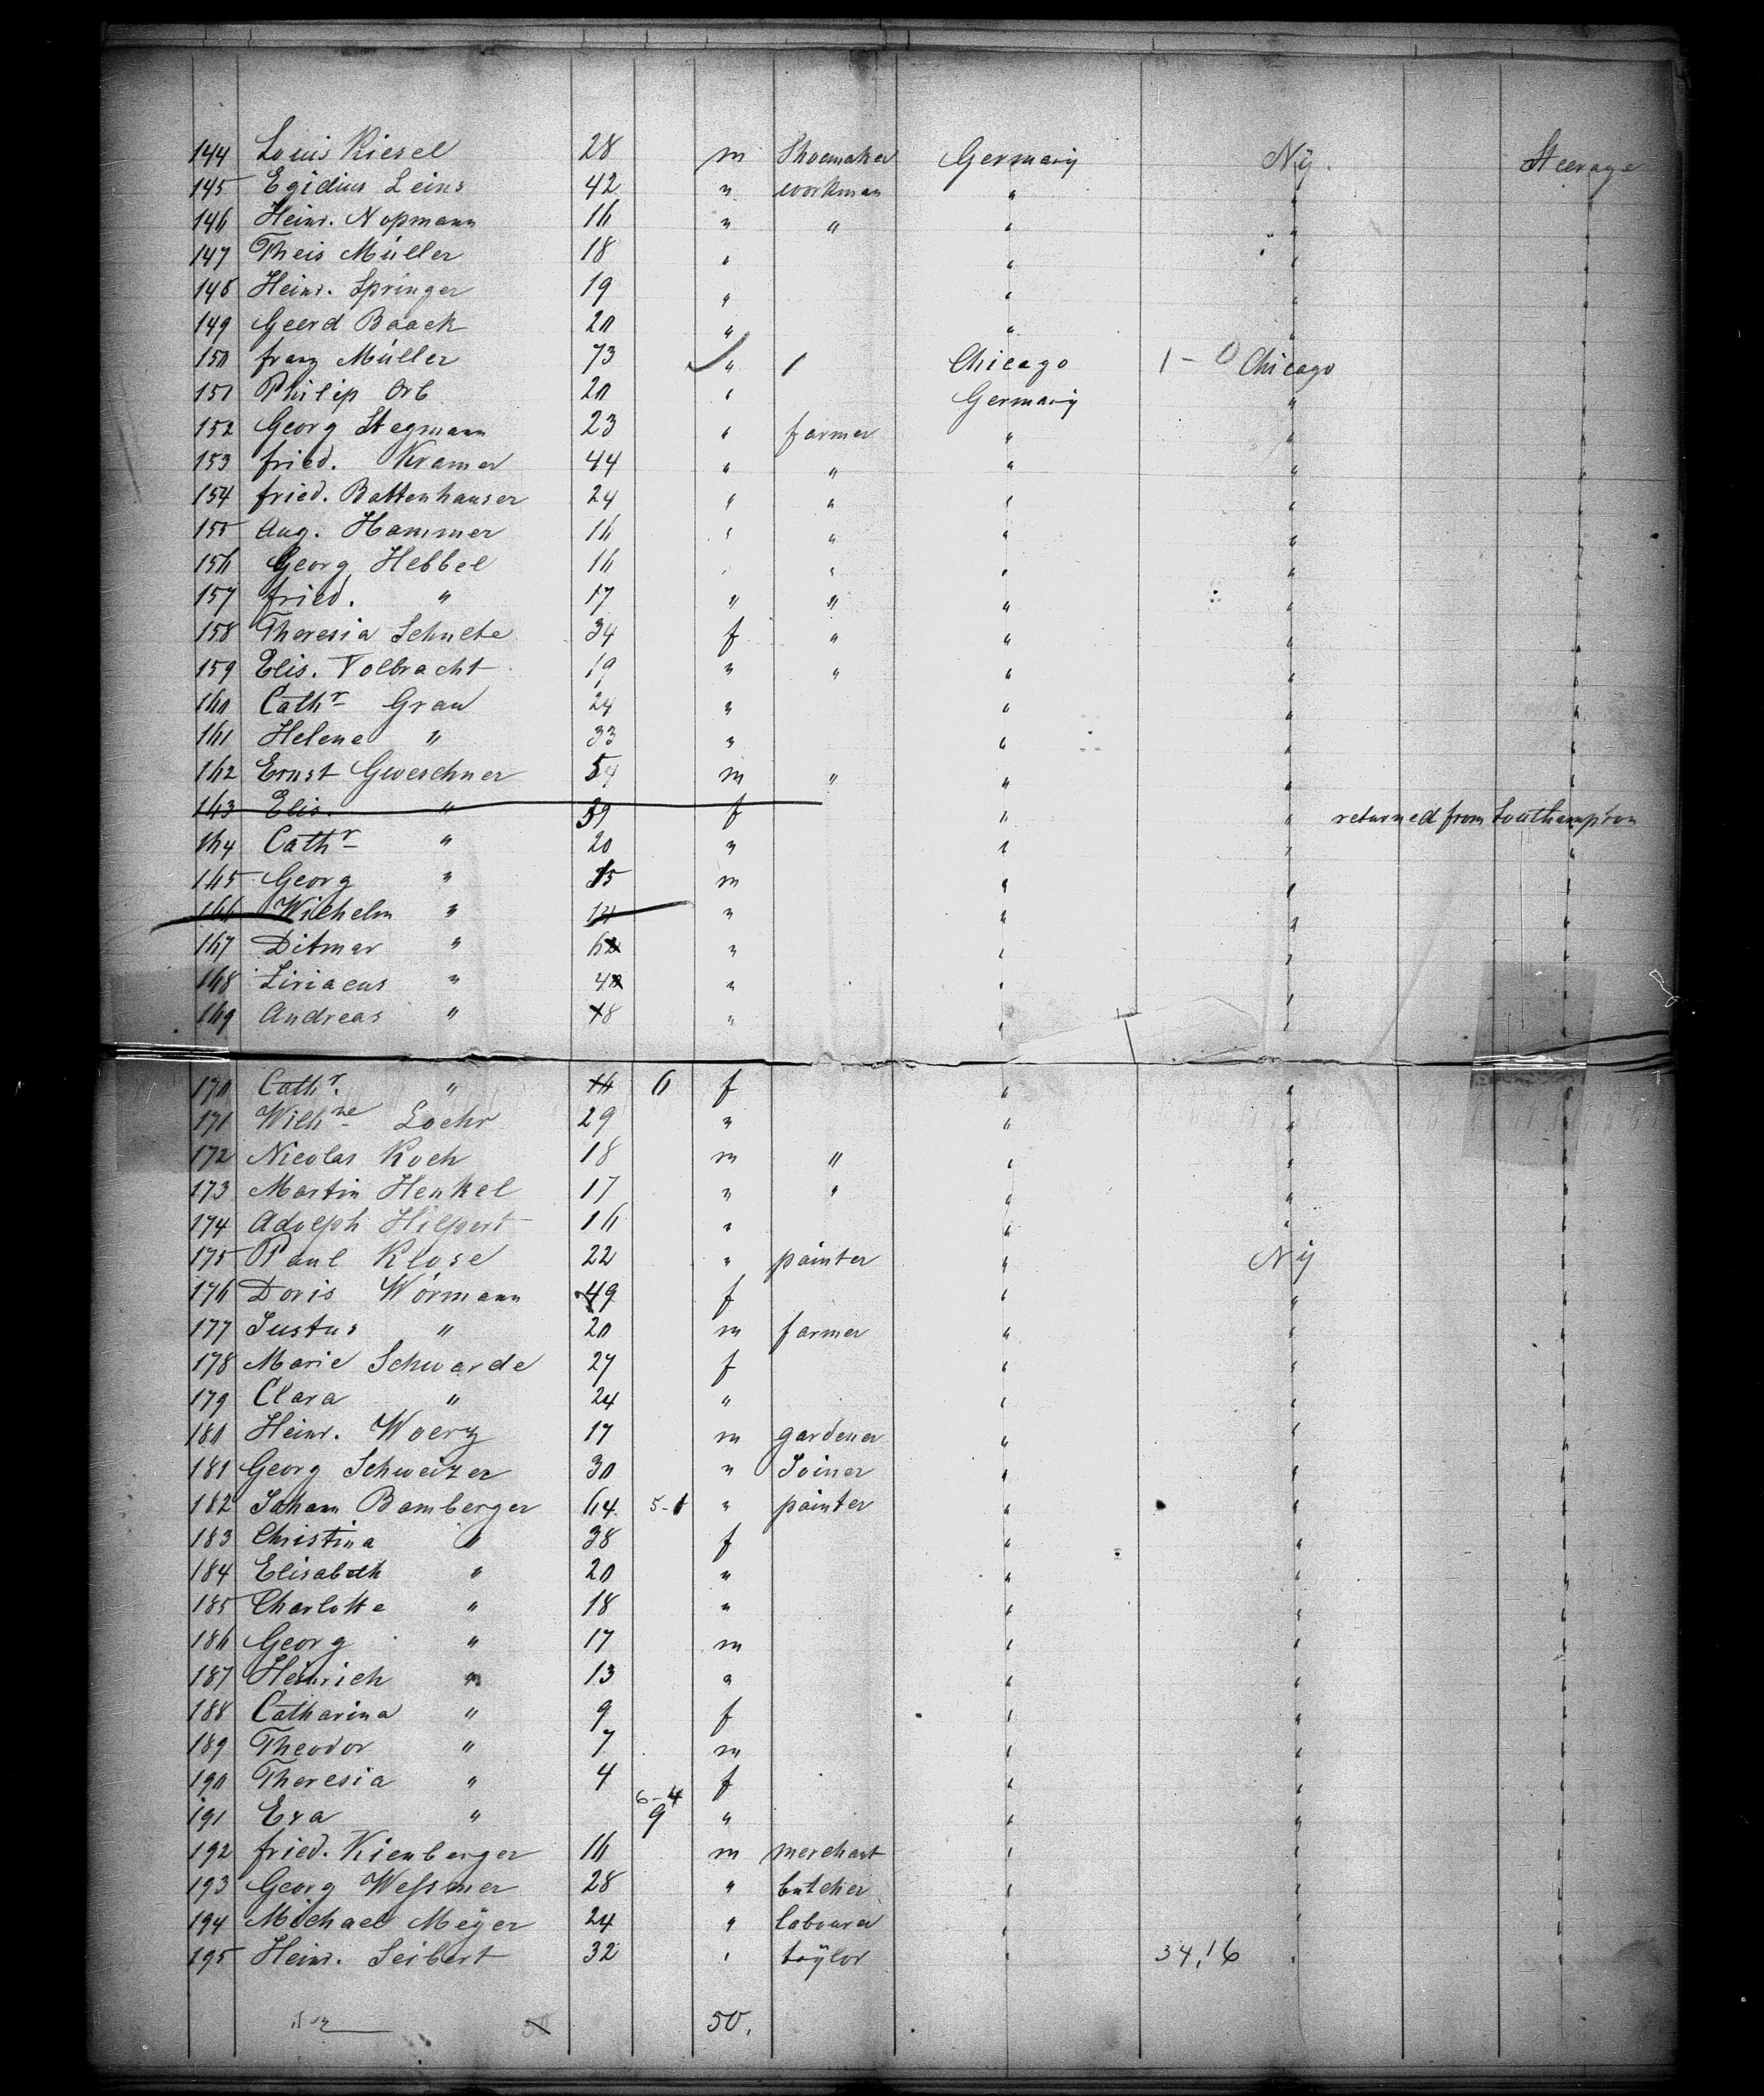 144 Louis Kiesel 28 m Shoemaker Germany Ny. Steerage
145 Egidius Leins 42 " workman " " "
146 Heinr. Nopmann 16 " " " " "
147 Theis Müller 18 " " " "
148 Heinr. Springer 19 " " " "
149 Geerd Baack 20 " " " "
150 franz Müller 73 " / Chicago 1 - 0 Chicago "
151 Philip Orb 20 " Germany " "
152 Georg Stegmann 23 " farmer " " "
153 fried. Kramer 44 " " " " "
154 fried. Battenhauser 24 " " " " "
155 Aug. Hammer 16 " " " " "
156 Georg Hebbel 16 " " " " "
157 fried. " 17 " " " " "
158 Theresia Schulte 34 f " " " "
159 Elis. Volbracht 19 " " " " "
160 Cathr Grau 24 " " " "
161 Helene " 33 " " " "
162 Ernst Gweschner 54 m " " " "
163 Elis. " 39 f " " returned from Southampton
164 Cathr " 20 " " " "
165 Georg " 15 m " " "
166 Wilhelm " 14 " " " "
167 Ditmar " 6 " " " "
168 Ziriacus " 4 " " " "
169 Andreas " 8 " " " "
170 Cathr. " 6 f " " "
171 Wilhne Loehr 29 " " " "
172 Nicolas Koch 18 m " " " "
173 Martin Henkel 17 " " " " "
174 Adolph Hilpert 16 " " " "
175 Paul Klose 22 " painter " Ny "
176 Doris Wörmann 49 f " " "
177 Justus " 20 m farmer " " "
178 Marie Schwarde 27 f " " "
179 Clara " 24 " " " "
180 Heinr. Woerz 17 m gardener " " "
181 Georg Schweizer 30 " Joiner " " "
182 Johann Bamberger 64 5-1 " painter " " "
183 Christina " 38 f " " "
184 Elisabeth " 20 " " " "
185 Charlotte " 18 " " " "
186 Georg " 17 m " " "
187 Heinrich " 13 " " " "
188 Catharina " 9 f " " "
189 Theodor " 7 m " " "
190 Theresia " 4 f " " "
6-4
191 Eva " 9 " " " "
192 fried. Kienberger 16 m merchant " " "
193 Georg Weßmer 28 " butcher " " "
194 Michael Meÿer 24 " labourer " " "
195 Heinr. Seibert 32 " taÿlor " 34,16 " "
50.